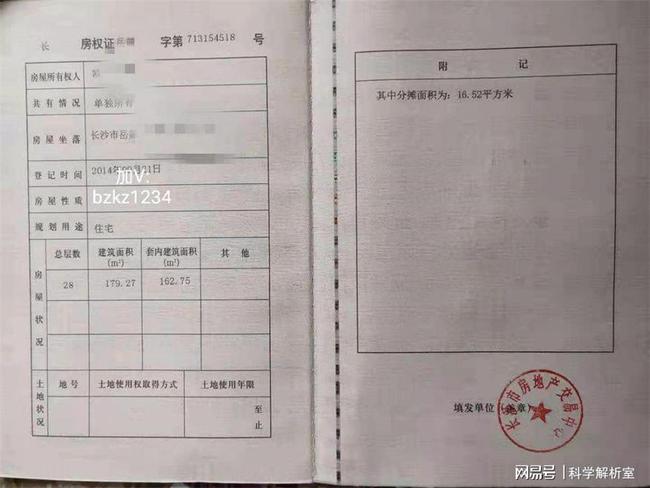 长 房权证岳麓 字第 713154518 号
房屋所有权人
共有情况 单独所有
房屋坐落 长沙市岳
登记时间 2014年 月 日
加V:
bzkz1234
房屋性质
规划用途 住宅
房屋状况 总层数 建筑面积(m²) 套内建筑面积(m²) 其他
28 179.27 162.75
土地状况 地号 土地使用权取得方式 土地使用年限
至
止
附 记
其中分摊面积为:16.52平方米
填发单位(盖章)
长沙市房地产交易中心
网易号 | 科学解析室